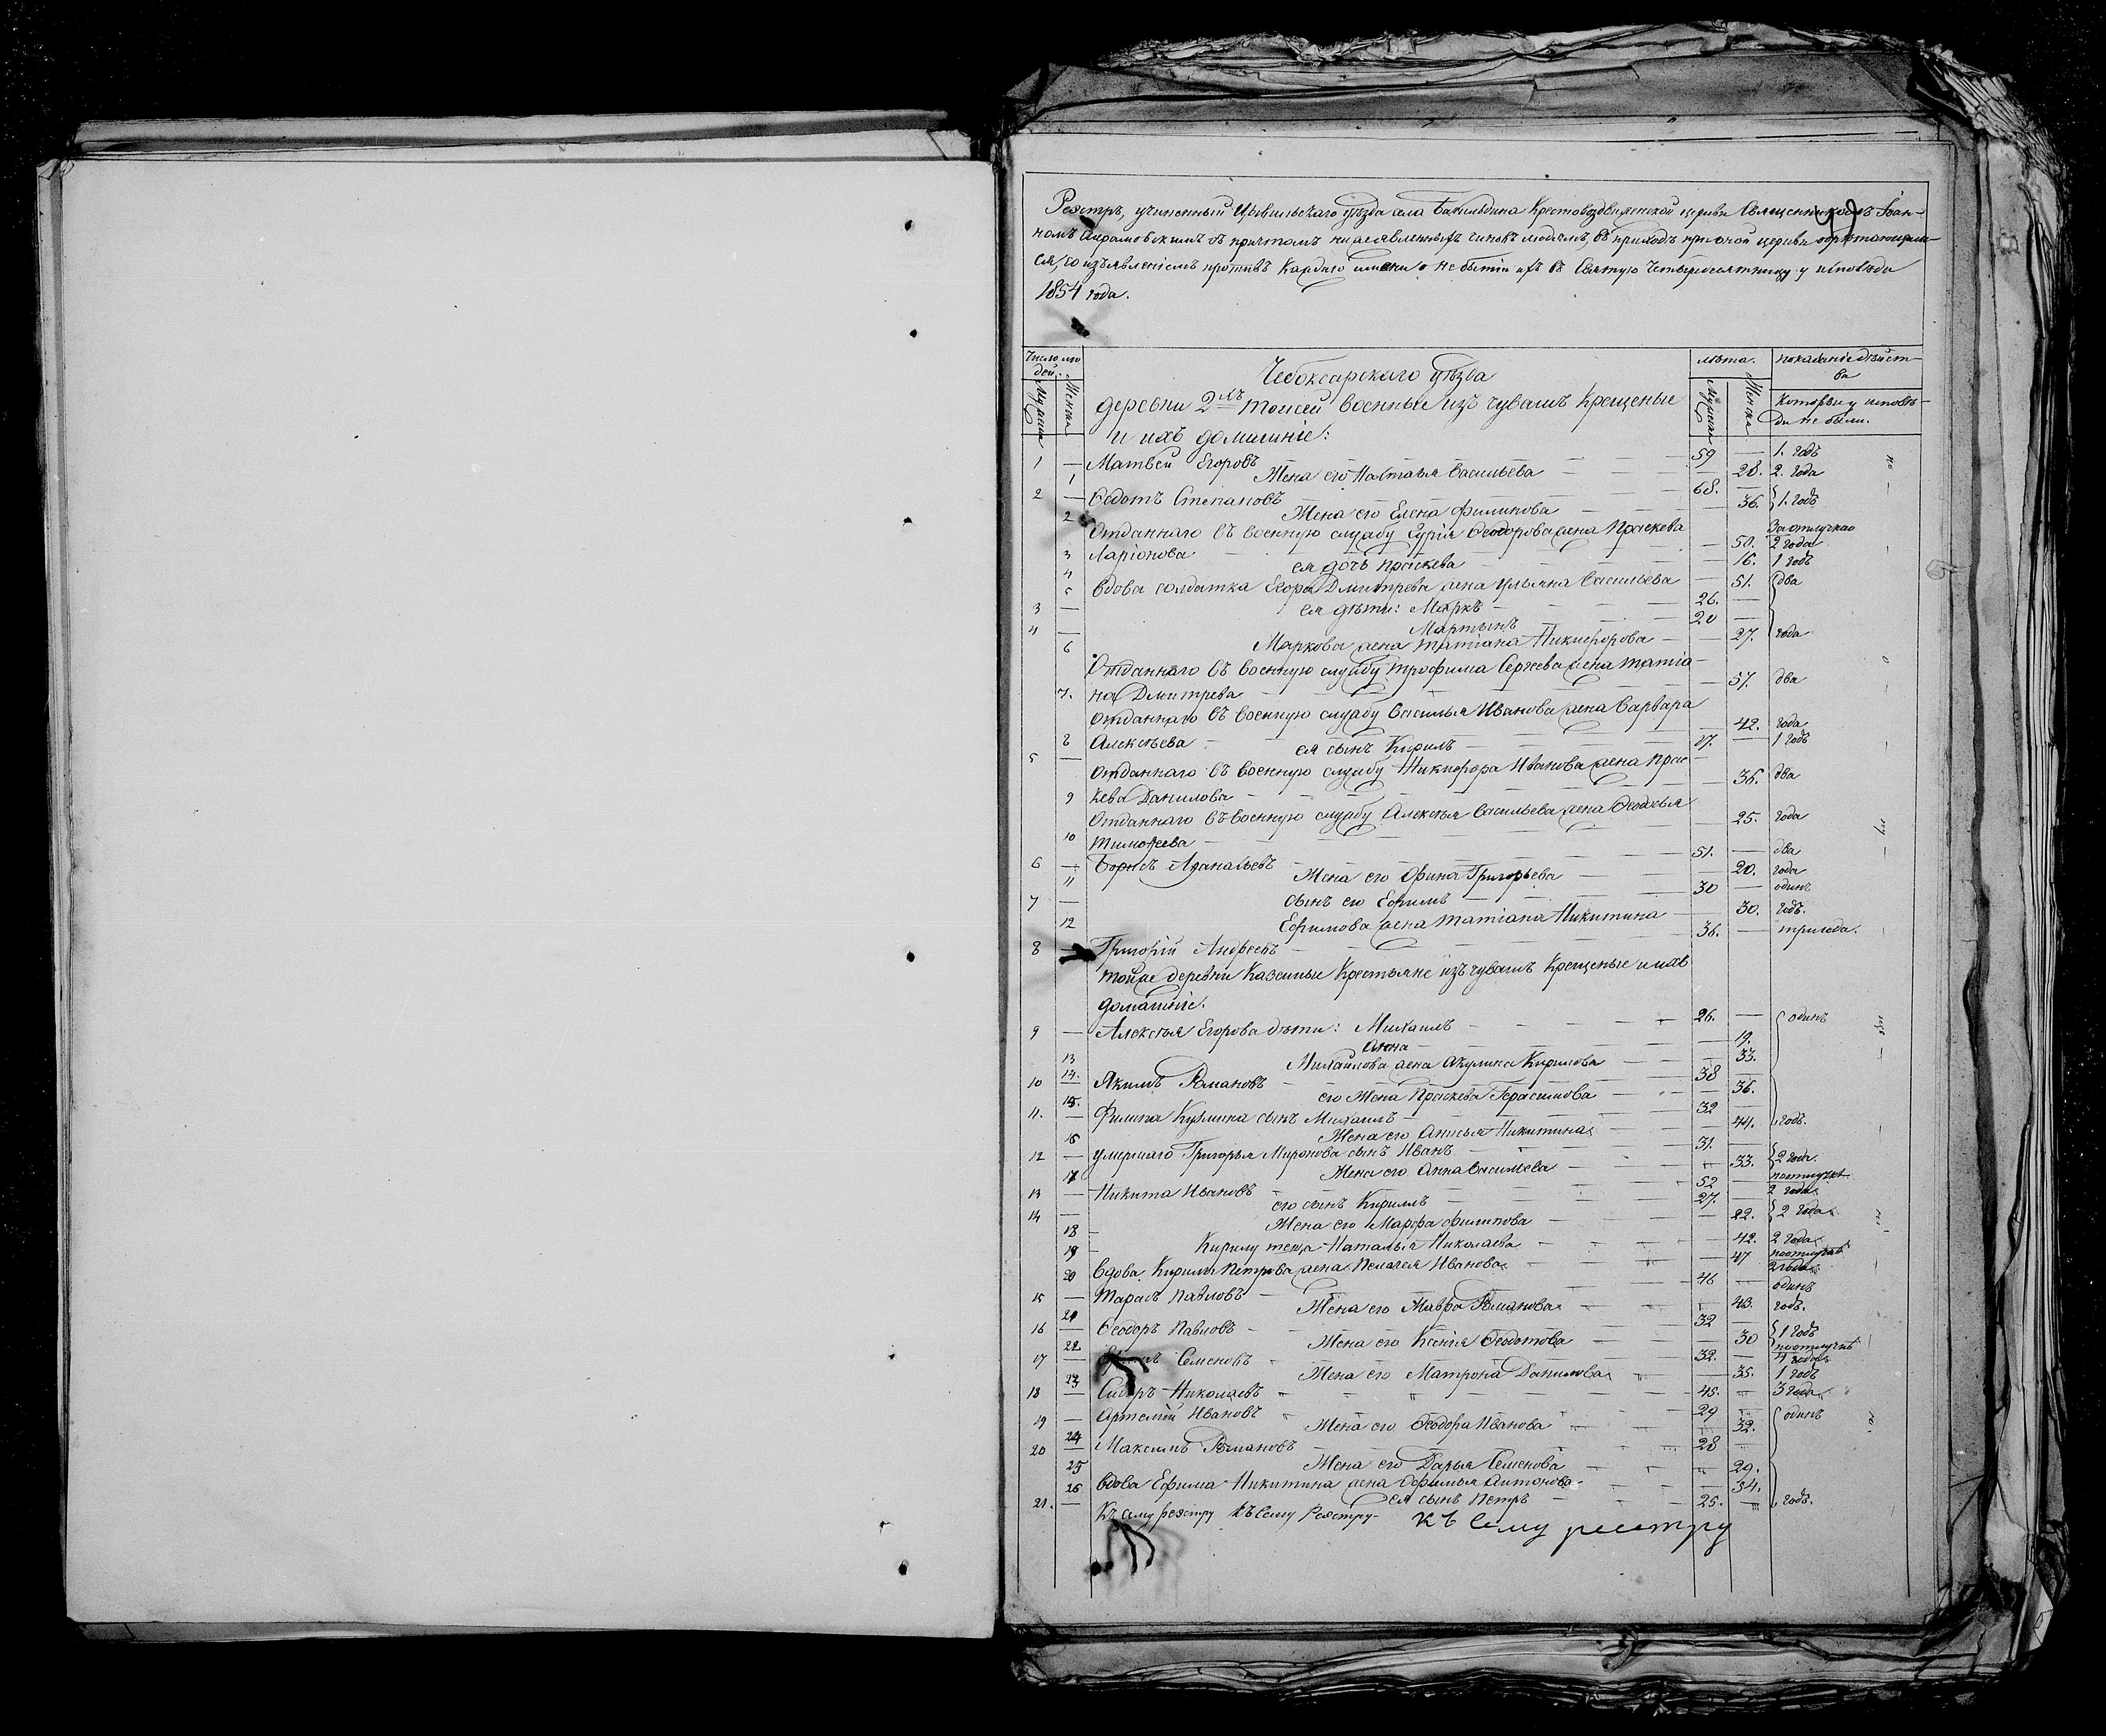 Реэстръ, учиненный Цывильскаго уѣзда села Крестовоздвиженской церкви Священникомъ Іоан-
номъ съ причтомъ нижеявленныхъ чиновъ людямъ, въ приходѣ при оной церкви обрѣтающим-
ся, со изъявленіемъ противъ каждаго имени о небытіи ихъ въ Святую Четыредесятницу у исповѣди
1854 года.
Число лю-
дей.
лѣта.
показаніе дѣйст-
ва
Мужска
Женска
Чебоксарскаго уѣзда
Мужска
Женска
которыи у исповѣ-
ди не были.
деревни 2хъ военные изъ чувашъ крещеные
и ихъ домашніе:
1 — Матвей Егоровъ — 59 — 1. годъ
1 Жена его Настасья Васильева — 28. 2. года
2 — Ѳедотъ Степановъ — 68. —
2 Жена его Елена Филипова — 36. 1. годъ
Отданнаго въ военную службу Гурія Ѳеодорова жена Праскева За отлучкою
3 Ларіонова — 50. 2 года
4 ея дочь Праскева — 16. 1 годъ
5 Вдова солдатка Егора Дмитрева жена Ульяна Васильева — 51. два
3 — ея дѣти: Маркъ — 26. —
4 — Мартынъ — 20 —
6 Маркова жена Татіана Никифорова — 27. года
Отданнаго въ военную службу Трофима Сергеева жена Татіа-
7. на Дмитрева — 57. два
Отданнаго въ военную службу Василья Иванова жена Варвара
8 Алексѣева — 42. года
5 — ея сынъ Кирилъ — 17. — 1 годъ
Отданнаго въ военную службу Никифора Иванова жена Прас-
9 кева Данилова — 36. два
Отданнаго въ военную службу Алексѣя Васильева жена Ѳеодосья
10 Тимоѳеева — 25. года
6 — Борисъ Аѳанасьевъ — 51. — два
11 Жена его Офина Григорьева — 20. года
7 — сынъ его Ефимъ — 30 — одинъ
12 Ефимова жена Татіана Никитина — 30. годъ.
8 — Григорій Андреевъ — 36. — три года.
тойже деревни Казенные Крестьяне изъ чувашъ Крещеные и ихъ
домашніе.
9 — Алексѣя Егорова дѣти: Михаилъ — 26. — одинъ
13 Анна — 19.
14. Михайлова жена Акулина Кирилова — 33.
10 — Якимъ Романовъ — 38 —
15. его Жена Праскева Герасимова — 36.
11. — Филипа Кузмина сынъ Михаилъ — 32 —
16 Жена его Анисья Никитина — 44. годъ.
12 — умершаго Григорья Миронова сынъ Иванъ — 31. —
17 Жена его Анна Васильева — 33. 2 года.
13 — Никита Ивановъ — 52 — по отлучкѣ 2 года
14 — его сынъ Кирилъ — 27. —
18 Жена его Марфа Филипова — 22. 2 года
19 Кирилу теща Наталья Николаева — 42. 2 года
20 Вдова Кирила Петрова жена Пелагея Иванова — 47 по отлучкѣ 2 года
15 — Тарасъ Павловъ — 46 — одинъ
21 Жена его Мавра Романова — 43. годъ.
16 — Ѳеодоръ Павловъ — 32 —
22 Жена его Ксенія Ѳеодотова — 30 1 годъ
17 — Семеновъ — 32. — по отлучкѣ 4 года
23 Жена его Матрона Данилова — 35. 1 годъ
18 — Сидоръ Николаевъ — 45. — 3 года
19 — Артемій Ивановъ — 29 — одинъ
24 Жена его Ѳеодора Иванова — 32.
20 — Максимъ Романовъ — 28 —
25 Жена его Дарья Семенова — 29.
26 Вдова Ефима Никитина жена Офимья Антонова — 54.
21. — ея сынъ Петръ — 25. — годъ.
Къ сему реэстру Къ сему Реэстру Къ сему реестру